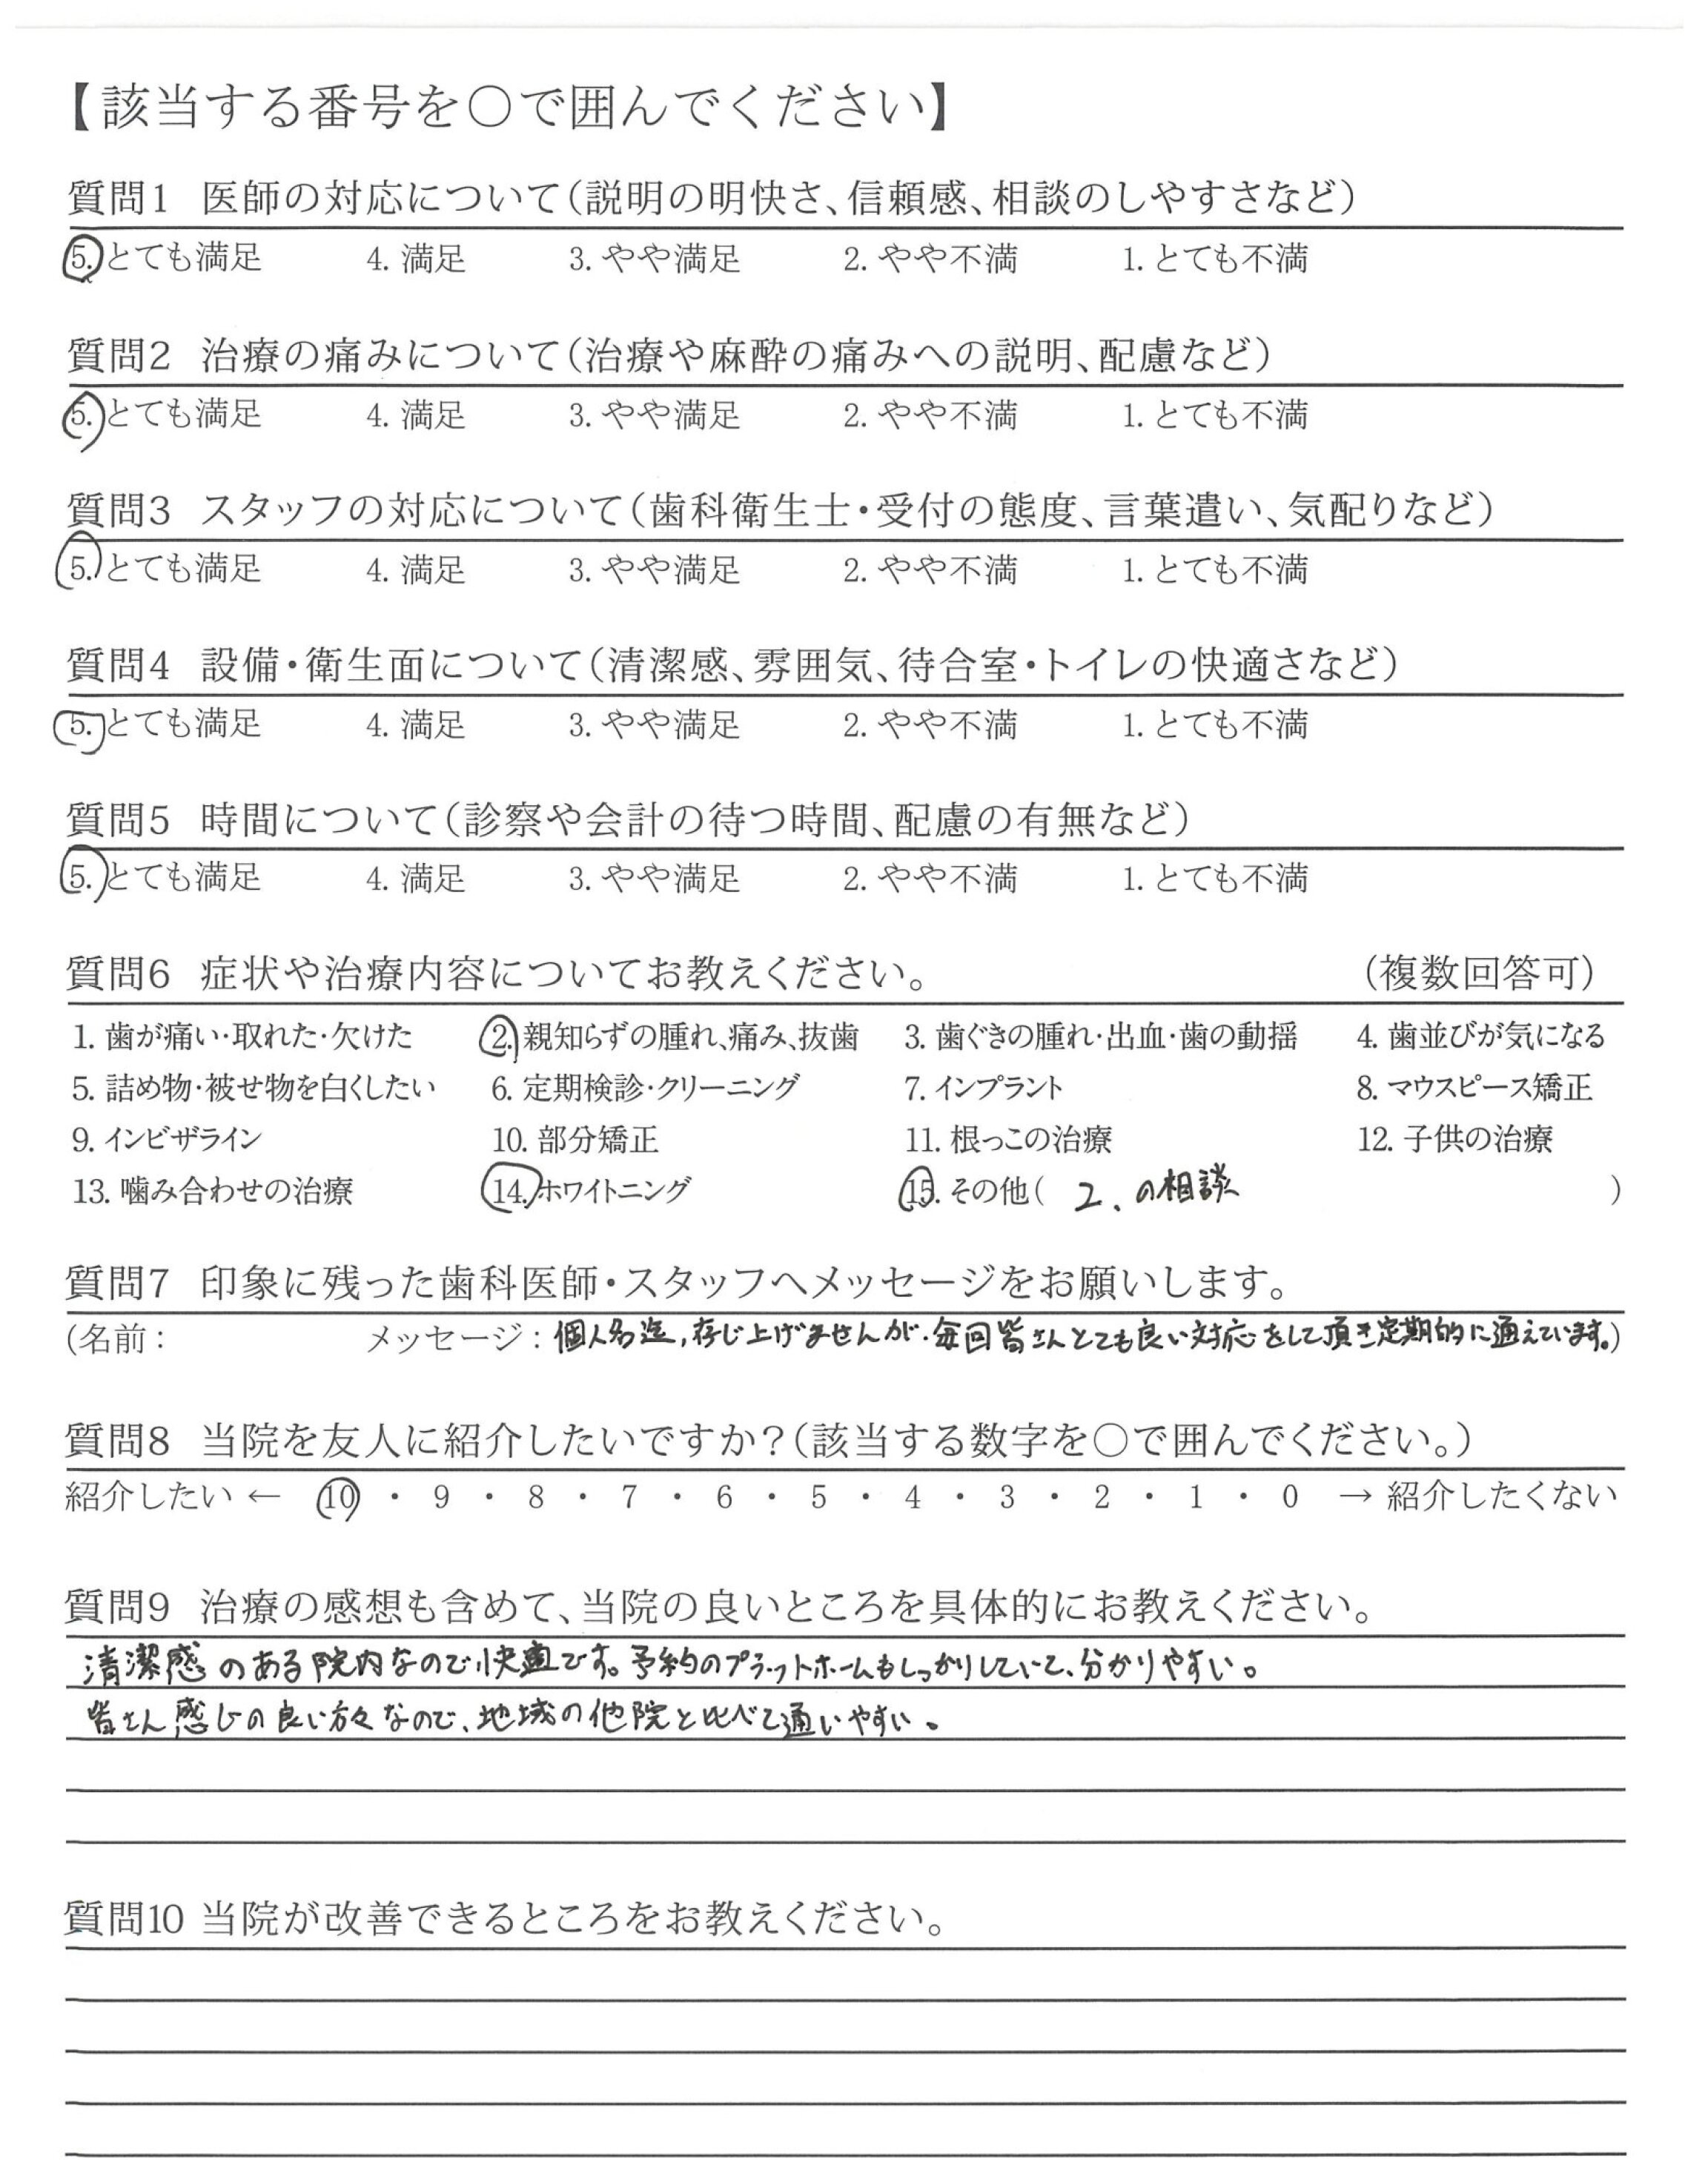 【該当する番号を○で囲んでください】
質問1 医師の対応について(説明の明快さ、信頼感、相談のしやすさなど)
5. とても満足 4. 満足 3. やや満足 2. やや不満 1. とても不満
質問2 治療の痛みについて(治療や麻酔の痛みへの説明、配慮など)
5. とても満足 4. 満足 3. やや満足 2. やや不満 1. とても不満
質問3 スタッフの対応について(歯科衛生士・受付の態度、言葉遣い、気配りなど)
5. とても満足 4. 満足 3. やや満足 2. やや不満 1. とても不満
質問4 設備・衛生面について(清潔感、雰囲気、待合室・トイレの快適さなど)
5. とても満足 4. 満足 3. やや満足 2. やや不満 1. とても不満
質問5 時間について(診察や会計の待つ時間、配慮の有無など)
5. とても満足 4. 満足 3. やや満足 2. やや不満 1. とても不満
質問6 症状や治療内容についてお教えください。 (複数回答可)
1. 歯が痛い・取れた・欠けた 2. 親知らずの腫れ、痛み、抜歯 3. 歯ぐきの腫れ・出血・歯の動揺 4. 歯並びが気になる
5. 詰め物・被せ物を白くしたい 6. 定期検診・クリーニング 7. インプラント 8. マウスピース矯正
9. インビザライン 10. 部分矯正 11. 根っこの治療 12. 子供の治療
13. 噛み合わせの治療 14. ホワイトニング 15. その他( 2、の相談 )
質問7 印象に残った歯科医師・スタッフへメッセージをお願いします。
(名前: メッセージ:個人名迄,存じ上げませんが、毎回皆さんとても良い対応をして頂き定期的に通えています。)
質問8 当院を友人に紹介したいですか?(該当する数字を○で囲んでください。)
紹介したい ← 10 ・ 9 ・ 8 ・ 7 ・ 6 ・ 5 ・ 4 ・ 3 ・ 2 ・ 1 ・ 0 → 紹介したくない
質問9 治療の感想も含めて、当院の良いところを具体的にお教えください。
清潔感のある院内なので快適です。予約のプラットホームもしっかりしていて、分かりやすい。
皆さん感じの良い方々なので、地域の他院と比べて通いやすい。
質問10 当院が改善できるところをお教えください。